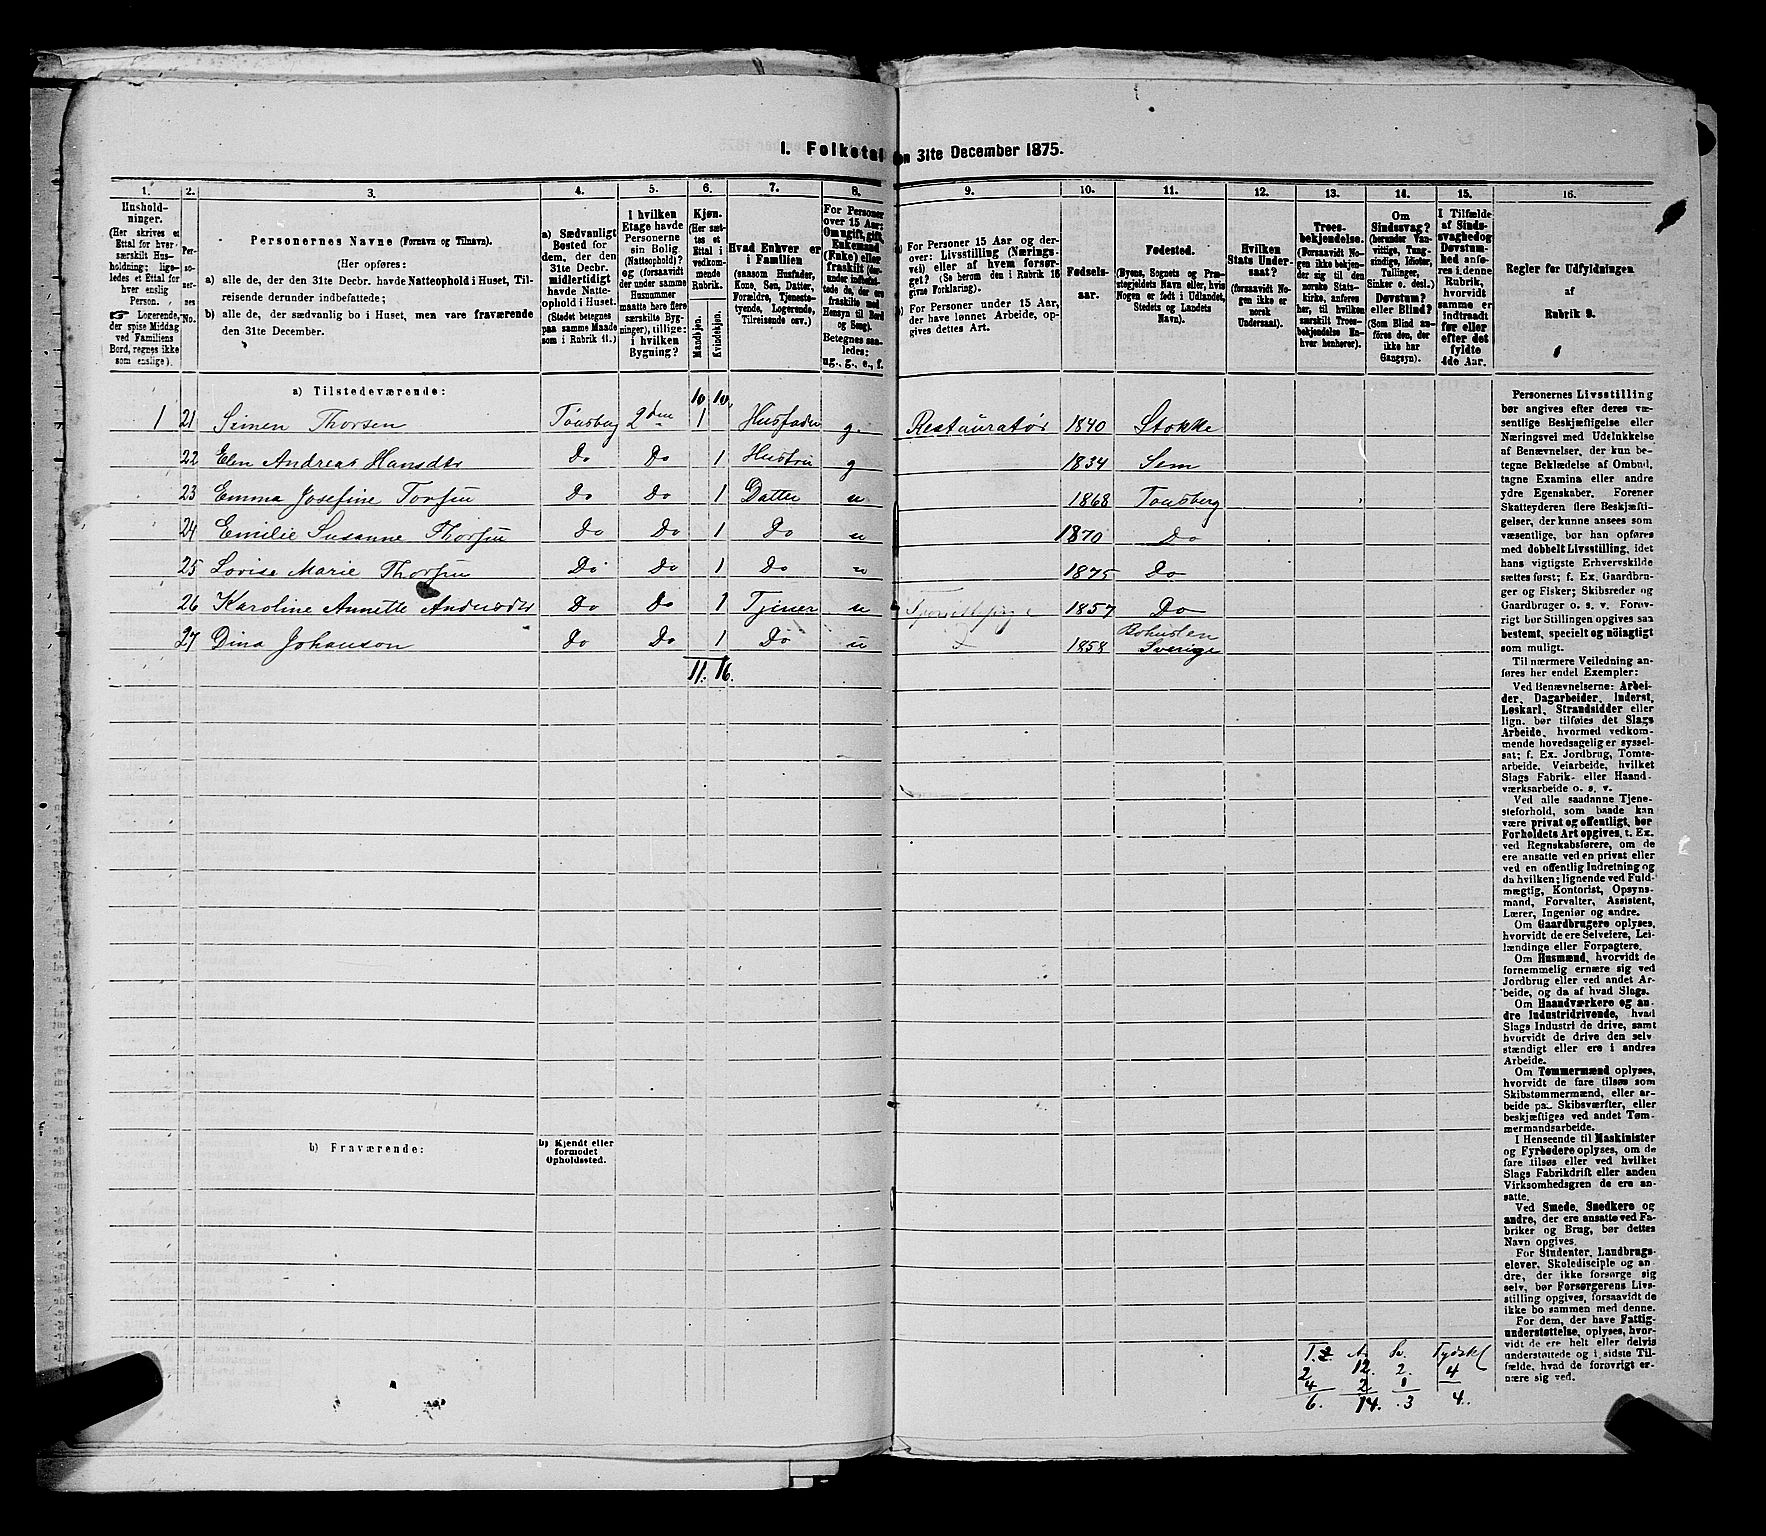 I. Folketal
n 31te December 1875.
1. 2. 3. 4. 5. 6. 7. 8. 9. 10. 11. 12. 13. 14. 15. 16.
Hushold-
ninger.
(Her skrives et
Ettal for hver
særskilt Hus-
holdning; lige-
ledes et Ettal for
hver enslig
Person.
☞ Logerende,
der spise Middag
ved Familiens
Bord, regnes ikke
som enslige).
Per-
so-
ner-
nes
No.
Personernes Navne (Fornavn og Tilnavn).
(Her opføres:
a) alle de, der den 31te Decbr. havde Natteophold i Huset, Til-
reisende derunder indbefattede;
b) alle de, der sædvanlig bo i Huset, men vare fraværende
den 31te December.
a) Sædvanligt
Bosted for
dem, der den
31te Decbr.
midlertidigt
havde Natte-
ophold i Huset.
(Stedet betegnes
paa samme Maade
som i Rubrik 11.)
I hvilken
Etage havde
Personerne
sin Bolig
(Natteophold)?
og (forsaavidt
der under samme
Husnummer
maatte høre flere
særskilte Byg-
ninger), tillige:
i hvilken
Bygning?
Kjøn.
(Her sæt-
tes et
Ettal i
vedkom-
mende
Rubrik.
Mandkjøn.
Kvindekjøn.
Hvad Enhver er
i Familien
(saasom Husfader,
Kone, Søn, Datter,
Forældre, Tjeneste-
tyende, Logerende,
Tilreisende osv.)
For Personer
over 15 Aar:
Om ugift, gift,
Enkemand
(Enke) eller
fraskilt (der-
under indbefat-
tede de, der ere
fraskilte med
Hensyn til Bord
og Seng).
Betegnes saa-
ledes:
ug., g., e., f.
a) For Personer 15 Aar og der-
over: Livsstilling (Nærings-
vei) eller af hvem forsør-
get? (Se herom den i Rubrik 16
givne Forklaring).
b) For Personer under 15 Aar,
der have lønnet Arbeide, op-
gives dettes Art.
Fødsels-
aar.
Fødested.
(Byens, Sognets og Præ-
stegjeldets Navn eller, hvis
Nogen er født i Udlandet,
Stedets og Landets
Navn).
Hvilken
Stats Under-
saat?
(forsaavidt No-
gen ikke er
norsk
Undersaat).
Troes-
bekjendelse.
(Forsaavidt No-
gen ikke bekjen-
der sig til den
norske Stats-
kirke, anføres
her, til hvilken
særskilt Troes-
bekjendelse En-
hver henhører).
Om
Sindssvag?
(herunder Van-
vittige, Tung-
sindige, Idioter,
Tullinger,
Sinker o. desl.).
Døvstum?
eller Blind?
(Som Blind an-
føres den, der
ikke har
Gangsyn).
I Tilfælde
af Sinds-
svaghed og
Døvstum-
hed anfø-
res i denne
Rubrik,
hvorvidt
samme er
indtraadt
før eller
efter det
fyldte
4de Aar.
Regler for Udfyldningen
af
Rubrik 9.
a) Tilstedeværende: 10 10
1 21 Simen Thorsen Tønsberg 2den 1 Husfader g. Restauratør 1840 Stokke
22 Elen Andreas Hansdtr Do Do 1 Hustru g 1834 Sem
23 Emma Josefine Torsen Do Do 1 Datter u 1868 Tønsberg
24 Emilie Susanne Thorsen Do Do 1 Do u 1870 Do
25 Lovise Marie Thorsen Do Do 1 Do u 1875 Do
26 Karoline Annette Andersdtr Do Do 1 Tjener u 1857 Do
27 Dina Johanson Do Do 1 Do u 1858 Bohuslen Sverige
11. 16.
b) Fraværende:
b) Kjendt eller
formodet
Opholdssted.
Personernes Livsstilling
bør angives efter deres væ-
sentlige Beskjæftigelse eller
Næringsvei med Udelukkelse
af Benævnelser, der kun be-
tegne Beklædelse af Ombud,
tagne Examina eller andre
ydre Egenskaber. Forener
Skatteyderen flere Beskjæfti-
gelser, der kunne ansees som
væsentlige, bør han opføres
med dobbelt Livsstilling, idet
hans vigtigste Erhvervskilde
sættes først; f. Ex. Gaardbru-
ger og Fisker; Skibsreder og
Gaardbruger o. s. v. Forøv-
rigt bør Stillingen opgives saa
bestemt, specielt og nøiagtigt
som muligt.
Til nærmere Veiledning an-
føres her endel Exempler:
Ved Benævnelserne: Arbei-
der, Dagarbeider, Inderst,
Løskarl, Strandsidder eller
lign. bør tilføies det Slags
Arbeide, hvormed vedkom-
mende hovedsagelig er syssel-
sat; f. Ex. Jordbrug, Tomte-
arbeide, Veiarbeide, hvilket
Slags Fabrik- eller Haand-
værksarbeide o. s. v.
Ved alle saadanne Tjene-
steforhold, som baade kan
være privat og offentligt, bør
Forholdets Art opgives, t. Ex.
ved Regnskabsførere, om de
ere ansatte ved en privat eller
ved en offentlig Indretning og
da hvilken; lignende ved Fuld-
mægtig, Kontorist, Opsyns-
mand, Forvalter, Assistent,
Lærer, Ingeniør og andre.
Om Gaardbrugere oplyses,
hvorvidt de ere Selveiere, Lei-
lændinge eller Forpagtere.
Om Husmænd, hvorvidt de
fornemmelig ernære sig ved
Jordbrug eller ved andet Ar-
beide, og da af hvad Slags.
Om Haandværkere og an-
dre Industridrivende, hvad
Slags Industri de drive, samt
hvorvidt de drive den selv
stændigt eller ere i andres
Arbeide.
Om Tømmermænd oplyses,
hvorvidt de fare tilsøs som
Skibstømmermænd, eller ar-
beide paa Skibsværfter, eller
beskjæftiges ved andet Tøm-
mermandsarbeide.
I Henseende til Maskinister
og Fyrbødere oplyses, om de
fare tilsøs eller ved hvilket
Slags Fabrikdrift eller anden
Virksomhedsgren de ere an-
satte.
Ved Smede, Snedkere og
andre, der ere ansatte ved Fa-
briker og Brug, bør dettes
Navn opgives.
For Studenter, Landbrugs-
elever, Skoledisciple og an-
dre, der ikke forsørge sig
selv, bør Forsørgerens Livs-
stilling opgives, forsaavidt de
ikke bo sammen med denne.
For dem, der have Fattig-
understøttelse, oplyses, hvor-
vidt de ere helt eller delvis
understøttede og i sidste Til-
fælde, hvad de forøvrigt er-
nære sig ved.
2 12. 2. 4
4 2 1
6. 14. 3 4.